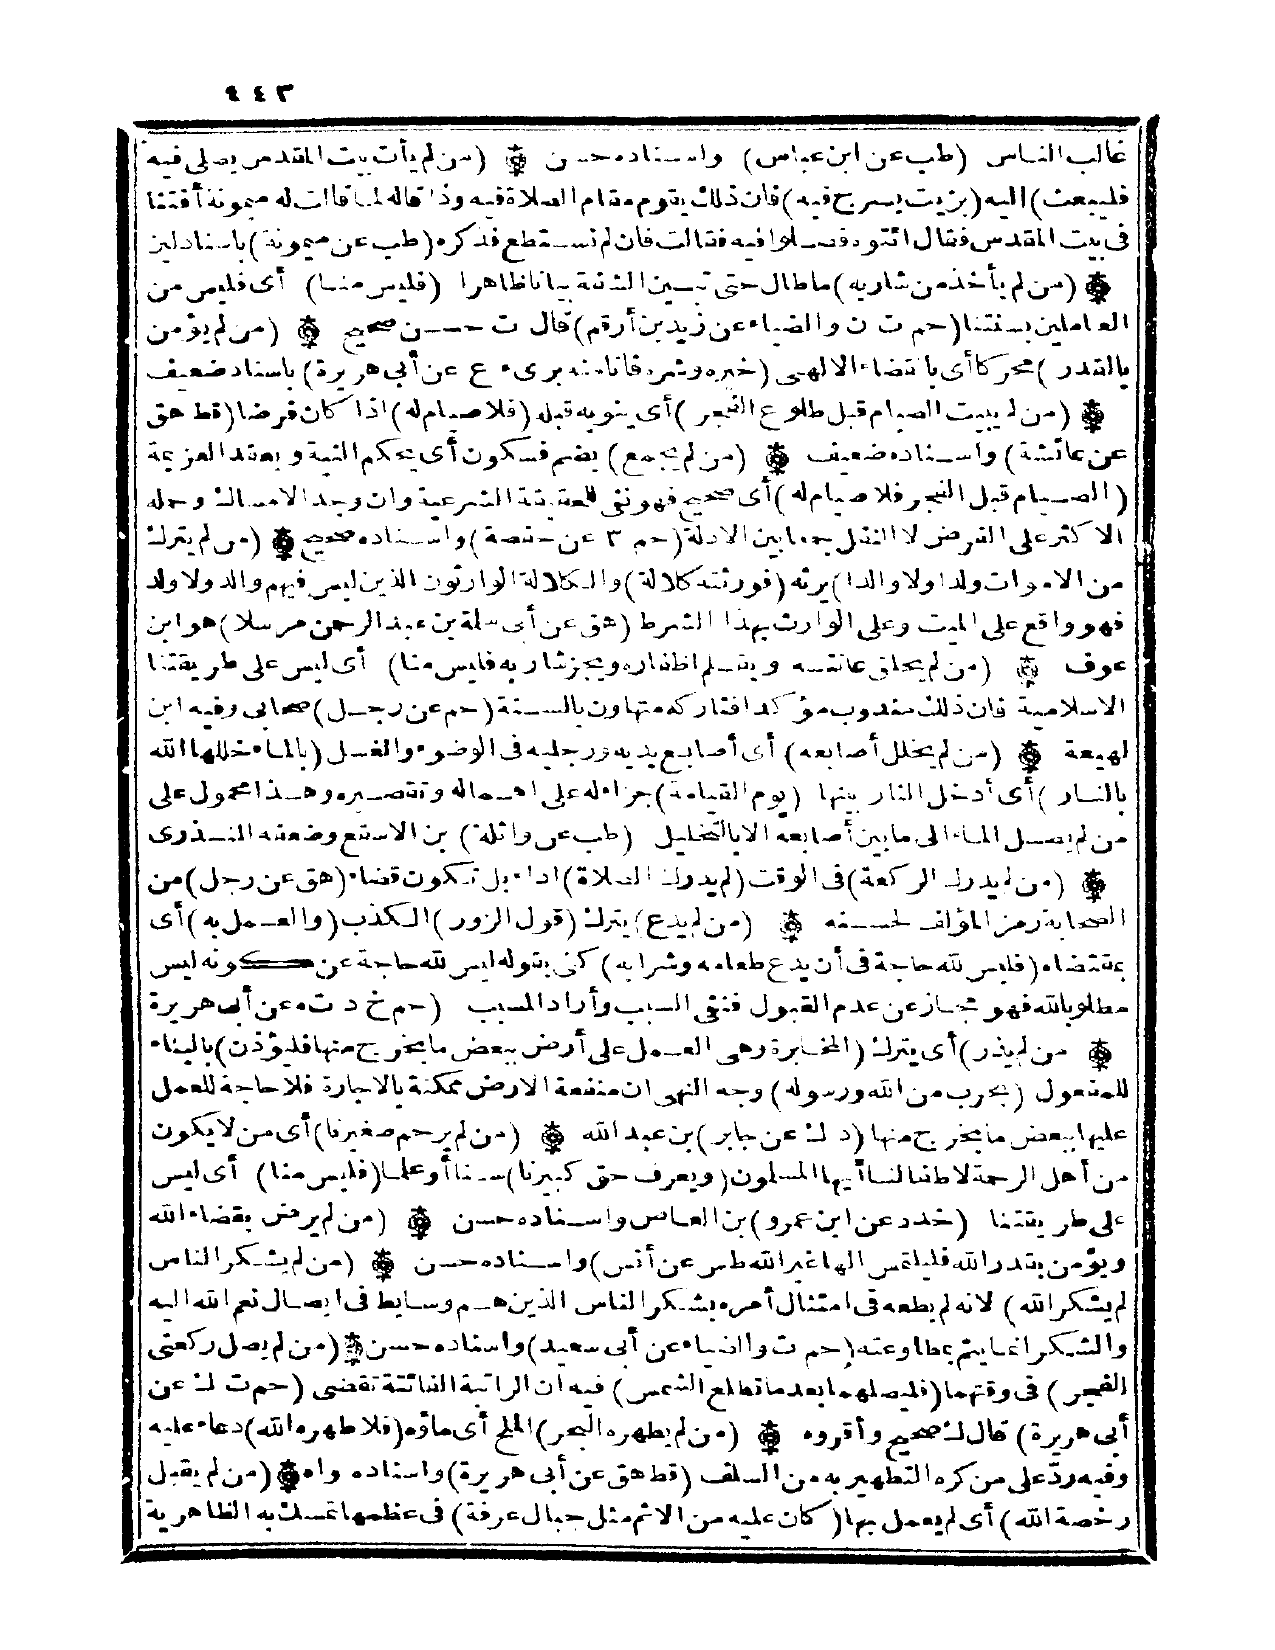 ٤٤٣
غالب الناس (طب عن ابن عباس) واسناده حسن ۞ (من لم يأت بيت المقدس يصلى فيه
فليبعث) اليه (بزيت يسرج فيه) فان ذلك يقوم مقام الصلاة فيه وذا قاله لما قالت له ميمونة أفتنا
فى بيت المقدس فقال ائتوه فصلوا فيه فقالت فان لم نستطع فذكره (طب عن ميمونة) باسناد لين
۞ (من لم يأخذ من شاربه) ما طال حتى تبين الشفة بيانا ظاهرا (فليس منا) أى فليس من
العاملين بسنتنا (حم ت ن والضياء عن زيد بن أرقم) قال ت حسن صحيح ۞ (من لم يؤمن
بالقدر) محركا أى بالقضاء الالهى (خيره وشره فانا منه برىء ع عن أبى هريرة) باسناد ضعيف
۞ (من لم يبيت الصيام قبل طلوع الفجر) أى ينويه قبله (فلا صيام له) اذا كان فرضا (قط هق
عن عائشة) واسناده ضعيف ۞ (من لم يجمع) بضم فسكون أى يحكم النية ويعقد العزيمة
(الصيام قبل الفجر فلا صيام له) أى صحيح فهو نفى للحقيقة الشرعية وان وجد الامساك وحمله
الاكثر على الفرض لا النفل جمعا بين الادلة (حم ٣ عن حفصة) واسناده صحيح ۞ (من لم يترك
من الاموات ولدا ولا والدا) يرثه (فورثته كلالة) والكلالة الوارثون الذين ليس فيهم والد ولا ولد
فهو واقع على الميت وعلى الوارث بهذا الشرط (هق عن أبى سلمة بن عبد الرحمن مرسلا) هو ابن
عوف ۞ (من لم يحلق عانته ويقلم اظفاره ويجز شاربه فليس منا) أى ليس على طريقتنا
الاسلامية فان ذلك مندوب مؤكد فتاركه متهاون بالسنة (حم عن رجل) صحابى وفيه ابن
لهيعة ۞ (من لم يخلل أصابعه) أى أصابع يديه ورجليه فى الوضوء والغسل (بالماء خللها الله
بالنار) أى أدخل النار بينها (يوم القيامة) جزاء له على اهماله وتقصيره وهذا محمول على
من لم يصل الماء الى ما بين أصابعه الا بالتخليل (طب عن واثلة) بن الاسقع وضعفه المنذرى
۞ (من لم يدرك الركعة) فى الوقت (لم يدرك الصلاة) اداء بل تكون قضاء (هق عن رجل) من
الصحابة رمز المؤلف لحسنه ۞ (من لم يدع) يترك (قول الزور) الكذب (والعمل به) أى
بمقتضاه (فليس لله حاجة فى أن يدع طعامه وشرابه) كنى بقوله ليس لله حاجة عن كونه ليس
مطلوبا لله فهو مجاز عن عدم القبول فنفى السبب وأراد المسبب (حم خ د ت ه عن أبى هريرة
۞ من لم يذر) أى يترك (المخابرة وهى العمل على أرض ببعض ما يخرج منها فليؤذن) بالبناء
للمفعول (بحرب من الله ورسوله) وجه النهى ان منفعة الارض ممكنة بالاجارة فلا حاجة للعمل
عليها ببعض ما يخرج منها (د ك عن جابر) بن عبد الله ۞ (من لم يرحم صغيرنا) أى من لا يكون
من أهل الرحمة لاطفالنا أيها المسلمون (ويعرف حق كبيرنا) سنا أو علما (فليس منا) أى ليس
على طريقتنا (خد د عن ابن عمرو) بن العاص واسناده حسن ۞ (من لم يرض بقضاء الله
ويؤمن بقدر الله فليلتمس الها غير الله طس عن أنس) واسناده حسن ۞ (من لم يشكر الناس
لم يشكر الله) لانه لم يطعه فى امتثال أمره بشكر الناس الذين هم وسايط فى ايصال نعم الله اليه
والشكر انما يتم بمطاوعته (حم ت والضياء عن أبى سعيد) واسناده حسن ۞ (من لم يصل ركعتى
الفجر) فى وقتهما (فليصلهما بعد ما تطلع الشمس) فيه ان الراتبة الفائتة تقضى (حم ت ك عن
أبى هريرة) قال ك صحيح وأقروه ۞ (من لم يطهره البحر) الملح أى ماؤه (فلا طهره الله) دعاء عليه
وفيه ردّ على من كره التطهير به من السلف (قط هق عن أبى هريرة) واسناده واه ۞ (من لم يقبل
رخصة الله) أى لم يعمل بها (كان عليه من الاثم مثل جبال عرفة) فى عظمها تمسك به الظاهرية